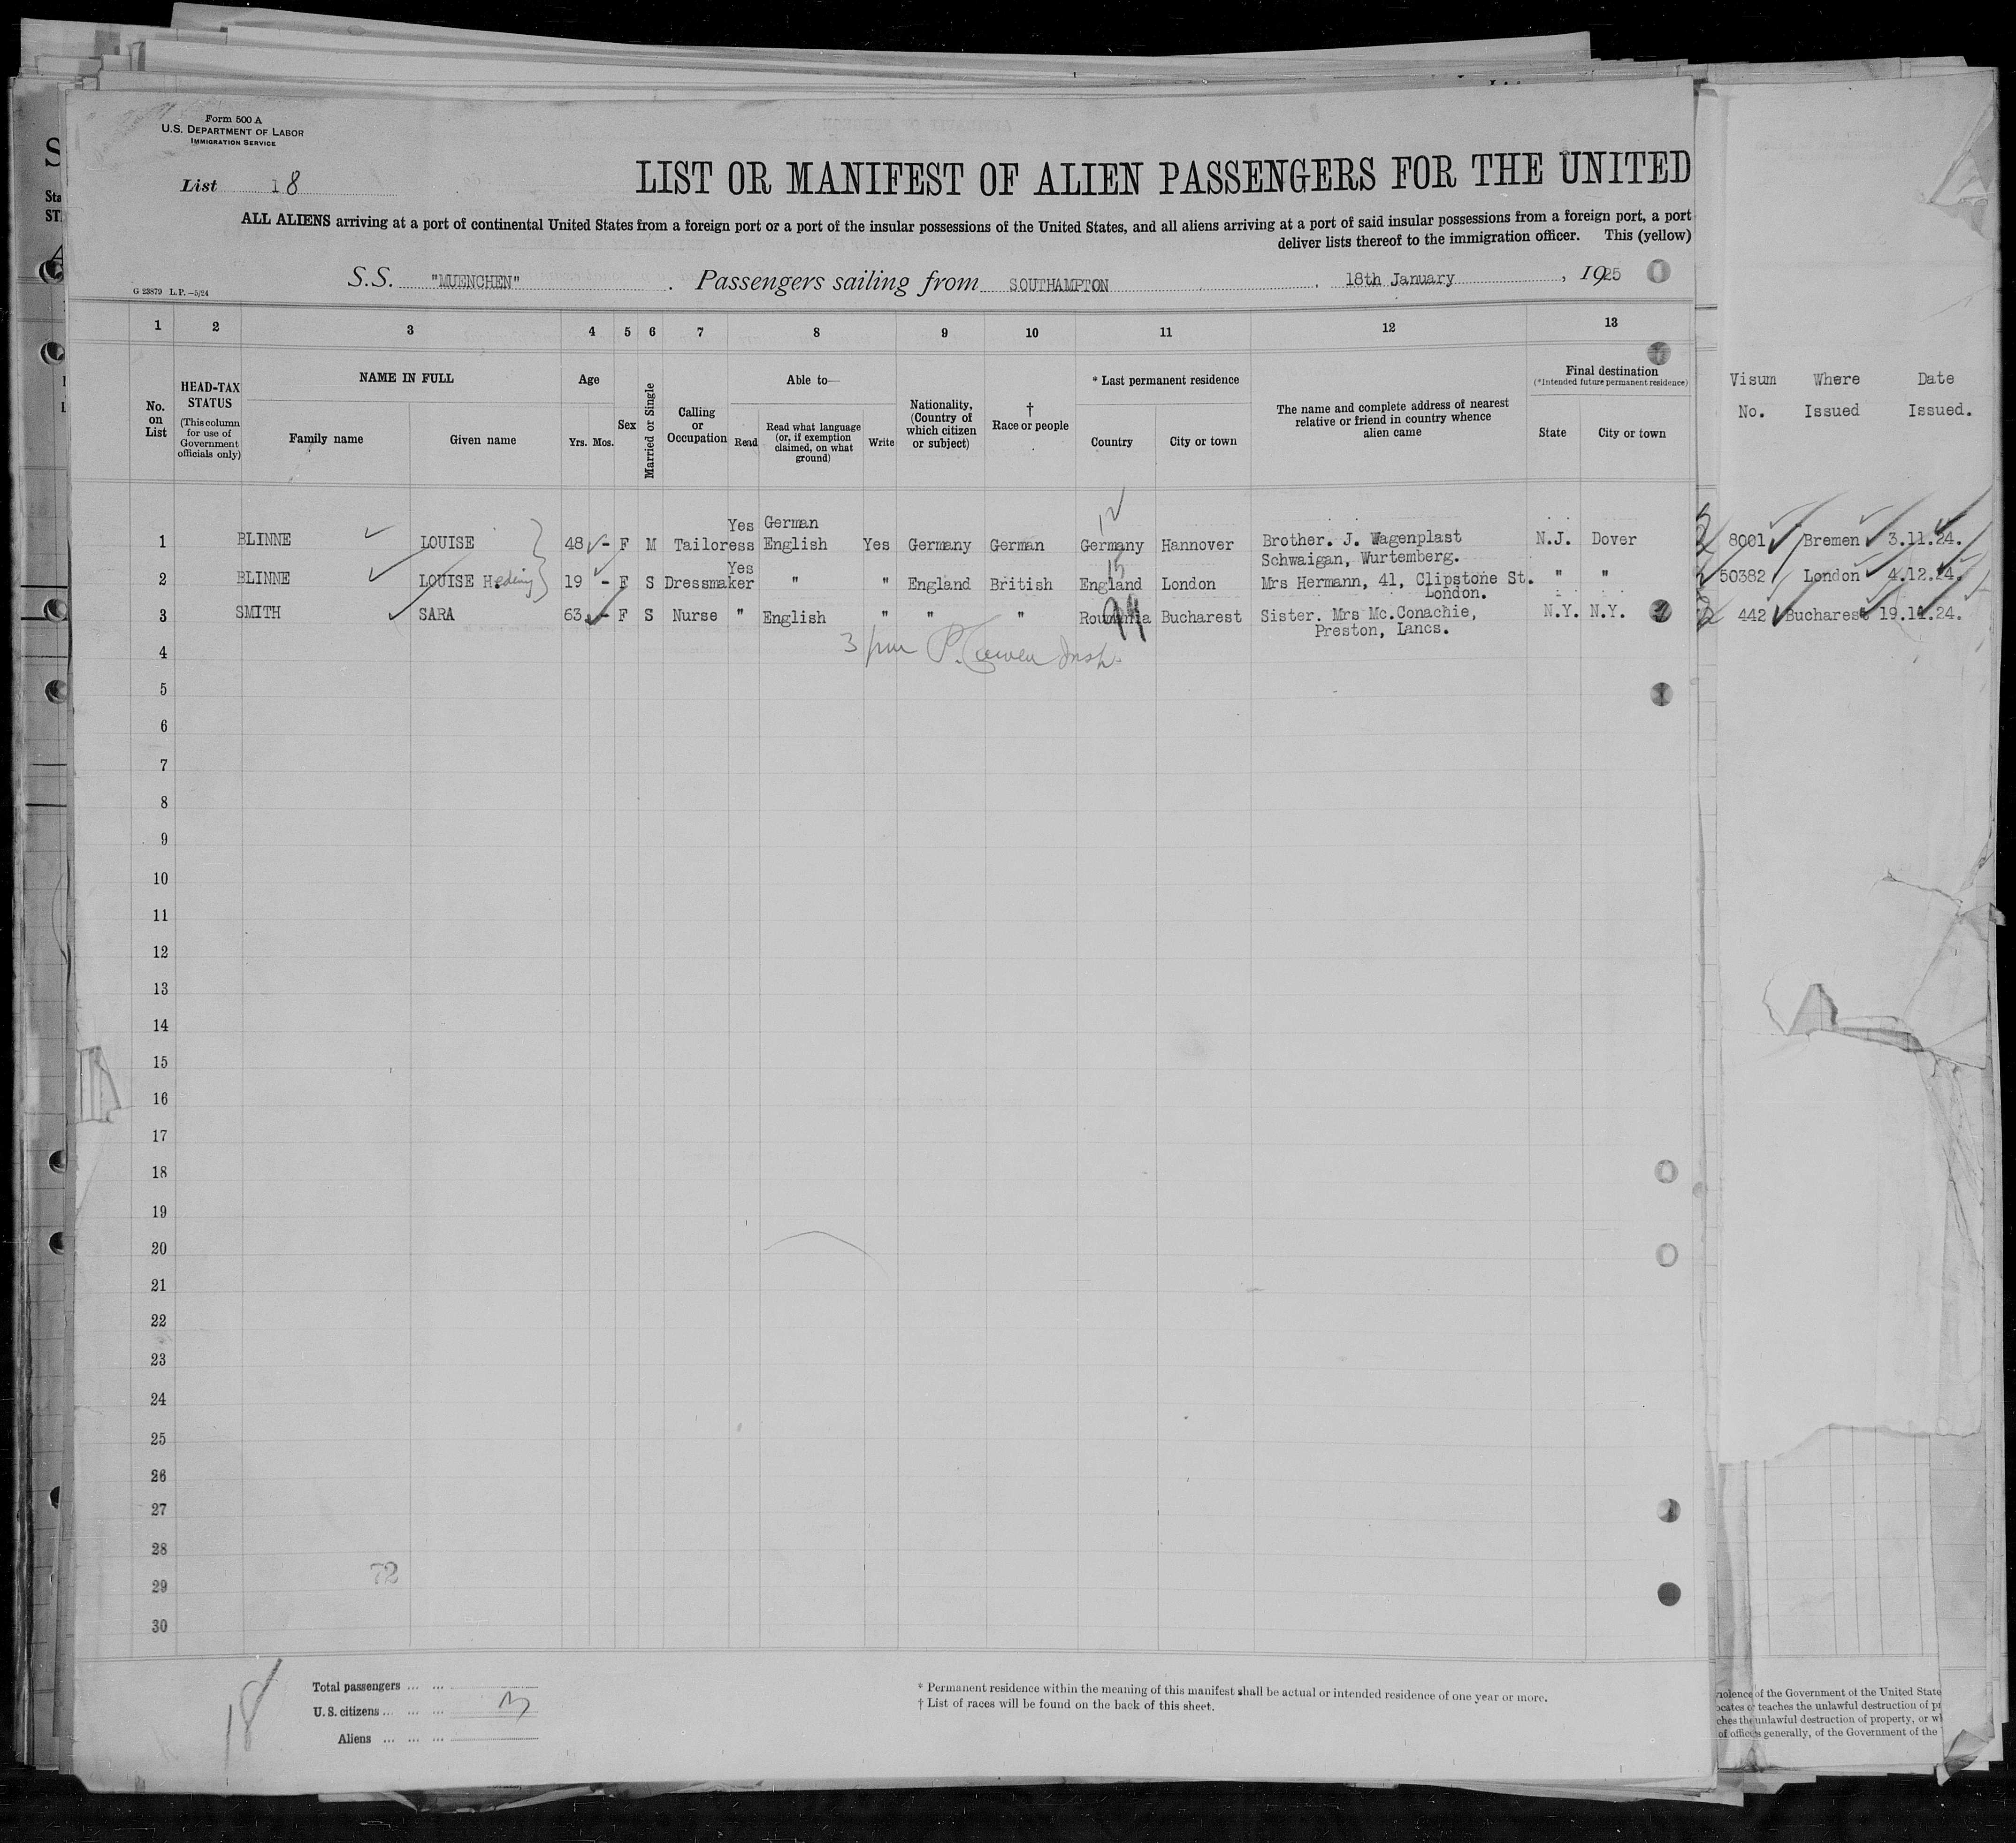 Form 500 A
U.S. DEPARTMENT OF LABOR
IMMIGRATION SERVICE
List 18
LIST OR MANIFEST OF ALIEN PASSENGERS FOR THE UNITED
ALL ALIENS arriving at a port of continental United States from a foreign port or a port of the insular possessions of the United States, and all aliens arriving at a port of said insular possessions from a foreign port, a port
deliver lists thereof to the immigration officer. This (yellow)
S.S. "MUENCHEN" . Passengers sailing from SOUTHAMPTON , 18th January , 1925
G 23879 L.P.—5/24
1 2 3 4 5 6 7 8 9 10 11 12 13
No. on List
HEAD-TAX STATUS
(This column for use of Government officials only)
NAME IN FULL
Family name Given name
Age
Yrs. Mos.
Sex
Married or Single
Calling or Occupation
Able to—
Read
Read what language (or, if exemption claimed, on what ground)
Write
Nationality, (Country of which citizen or subject)
† Race or people
* Last permanent residence
Country City or town
The name and complete address of nearest relative or friend in country whence alien came
Final destination
(*Intended future permanent residence)
State City or town
Visum Where Date
No. Issued Issued.
12
Yes German
1 BLINNE LOUISE 48 - F M Tailoress English Yes Germany German Germany Hannover Brother. J. Wagenplast N.J. Dover 8001 Bremen 3.11.24.
Schwaigan, Wurtemberg.
Yes
2 BLINNE LOUISE Hedwig 19 - F S Dressmaker " " England British England London Mrs Hermann, 41, Clipstone St. " " 50382 London 4.12.24.
London.
3 SMITH SARA 63 - F S Nurse " English " " " Roumania Bucharest Sister. Mrs Mc.Conachie, N.Y. N.Y. 442 Bucharest 19.11.24.
Preston, Lancs.
4
5
6
7
8
9
10
11
12
13
14
15
16
17
18
19
20
21
22
23
24
25
26
27
28
72
29
30
18
Total passengers ... ...
U.S. citizens ... ... ...
Aliens ... ... ...
3
* Permanent residence within the meaning of this manifest shall be actual or intended residence of one year or more.
† List of races will be found on the back of this sheet.
of the Government of the United State
teaches the unlawful destruction of
unlawful destruction of property, or
generally, of the Government of the